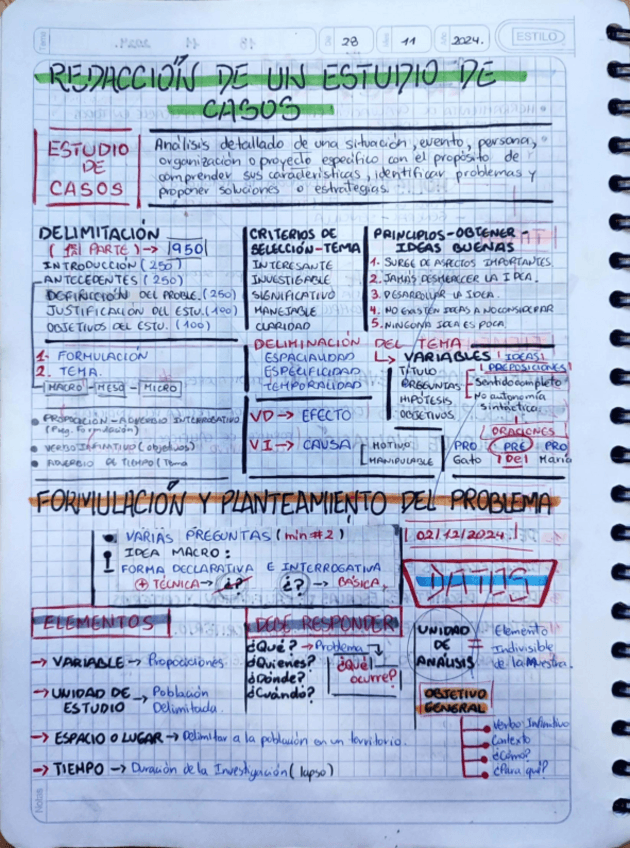 Día 28 Mes 11 Año 2024.
ESTILO
REDACCIÓN DE UN ESTUDIO DE
CASOS
ESTUDIO
DE
CASOS
Análisis detallado de una situación, evento, persona,
organización o proyecto específico con el propósito de
comprender sus características, identificar problemas y
proponer soluciones o estrategias.
DELIMITACIÓN
PARTE) → 1950
INTRODUCCIÓN (250)
ANTECEDENTES (250)
DEL PROBLE. (250)
JUSTIFICACIÓN DEL ESTU. (400)
OBJETIVOS DEL ESTU. (100)
CRITERIOS DE
SELECCIÓN-TEMA
INTERESANTE
INVESTIGABLE
SIGNIFICATIVO
MANEJABLE
CLARIDAD
PRINCIPIOS-OBTENER-
IDEAS BUENAS
1. SURGE DE ASPECTOS IMPORTANTES.
2. JAMÁS DESMERECER LA IDEA.
3. DESARROLLAR LA IDEA.
4. NO EXISTEN IDEAS A NO CONSIDERAR
5. NINGUNA IDEA ES POCA.
1. FORMULACIÓN
2. TEMA.
MACRO - MESO - MICRO
PROPOSICIÓN - ADVERBIO INTERROGATIVO
(Preg. Formulación)
VERBO INFINITIVO (objetivos)
ADVERBIO DE TIEMPO (Tema
DELIMINACIÓN DEL TEMA
ESPACIALIDAD
ESPECIFICIDAD
TEMPORALIDAD
VARIABLES IDEAS
TÍTULO
PREGUNTAS
HIPÓTESIS
OBJETIVOS
PREPOSICIONES
Sentido completo
No autonomía
sintáctica.
VD → EFECTO
VI → CAUSA
MOTIVO
MANIPULABLE
ORACIONES
PRO PRE PRO
Gato DEL Mario
FORMULACIÓN Y PLANTEAMIENTO DEL PROBLEMA
VARIAS PREGUNTAS (min #2)
IDEA MACRO:
FORMA DECLARATIVA E INTERROGATIVA
+ TÉCNICA → ¿? ¿? → BÁSICA
02/12/2024
DATOS
ELEMENTOS
→ VARIABLE → Proposiciones
→ UNIDAD DE → Población
ESTUDIO Delimitada.
→ ESPACIO O LUGAR → Delimitar a la población en un territorio.
→ TIEMPO → Duración de la Investigación (lapso)
DEBE RESPONDER
¿Qué? → Problema
¿Quienes?
¿Dónde?
¿Cuándo?
¿Qué
ocurre?
UNIDAD
DE
ANÁLISIS
= Elemento
Indivisible
de la Muestra.
OBJETIVO
GENERAL
Verbo: Infinitivo
Contexto
¿Cómo?
¿Para qué?
Notas